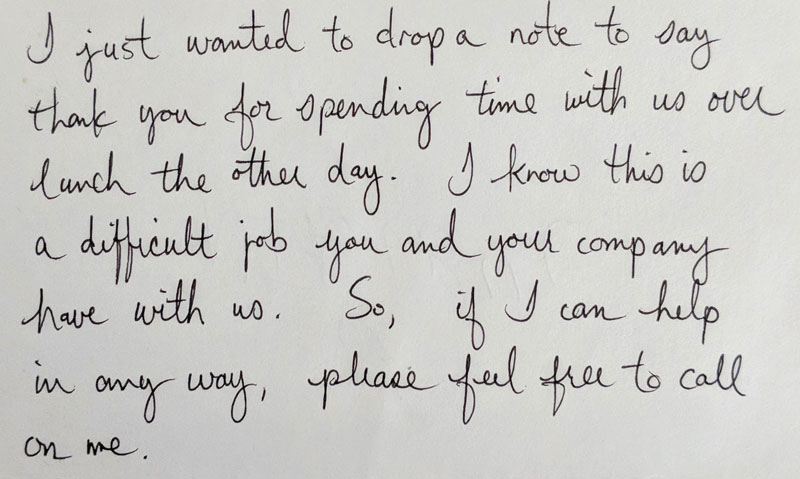 I just wanted to drop a note to say
thank you for spending time with us over
lunch the other day. I know this is
a difficult job you and your company
have with us. So, if I can help
in any way, please feel free to call
on me.